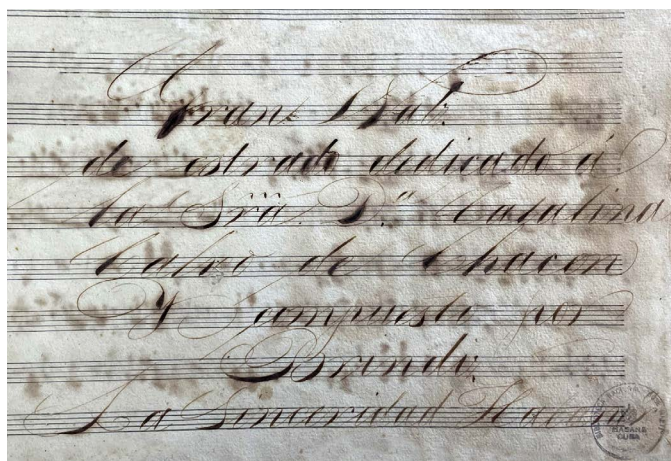 Gran Vals
de estrado dedicado á
la Srã. D.ª Catalina
Calvo de Chacon
Y Compuesto por
Brindis
La Sinceridad Habana
HABANA
CUBA